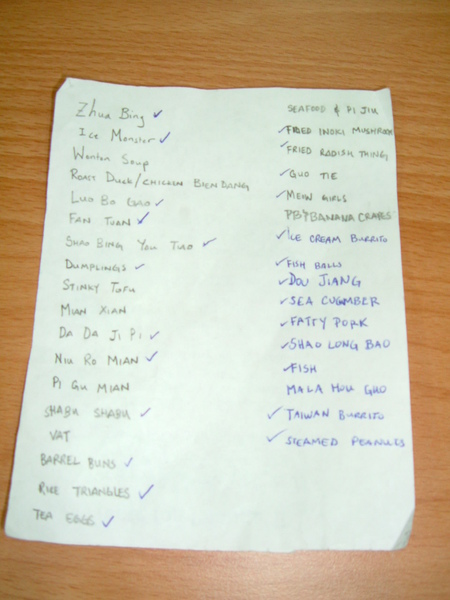 Zhua Bing ✓
Ice Monster ✓
Wonton Soup
Roast Duck/Chicken Bien Dang
Luo Bo Gao ✓
Fan Tuan ✓
Shao Bing You Tiao ✓
Dumplings ✓
Stinky Tofu
Mian Xian
Da Da Ji Pi ✓
Niu Ro Mian ✓
Pi Gu Mian
Shabu Shabu ✓
Vat
Barrel Buns ✓
Rice Triangles ✓
Tea Eggs ✓
Seafood & Pi Jiu
✓ Fried Inoki Mushroom
✓ Fried Radish Thing
✓ Guo Tie
✓ Meow Girls
PB & Banana Crapes
✓ Ice Cream Burrito
✓ Fish Balls
✓ Dou Jiang
✓ Sea Cucumber
✓ Fatty Pork
✓ Shao Long Bao
✓ Fish
Mala Hou Guo
✓ Taiwan Burrito
✓ Steamed Peanuts